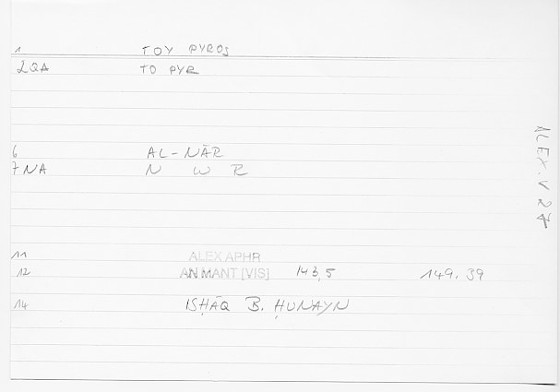 1 TOY PYROS
2QA TO PYR
6 AL-NĀR
7NA N W R
11 ALEX APHR
12 AN MANT [VIS] 143,5 149.39
14 ISḤĀQ B. ḤUNAYN
ALEX.V